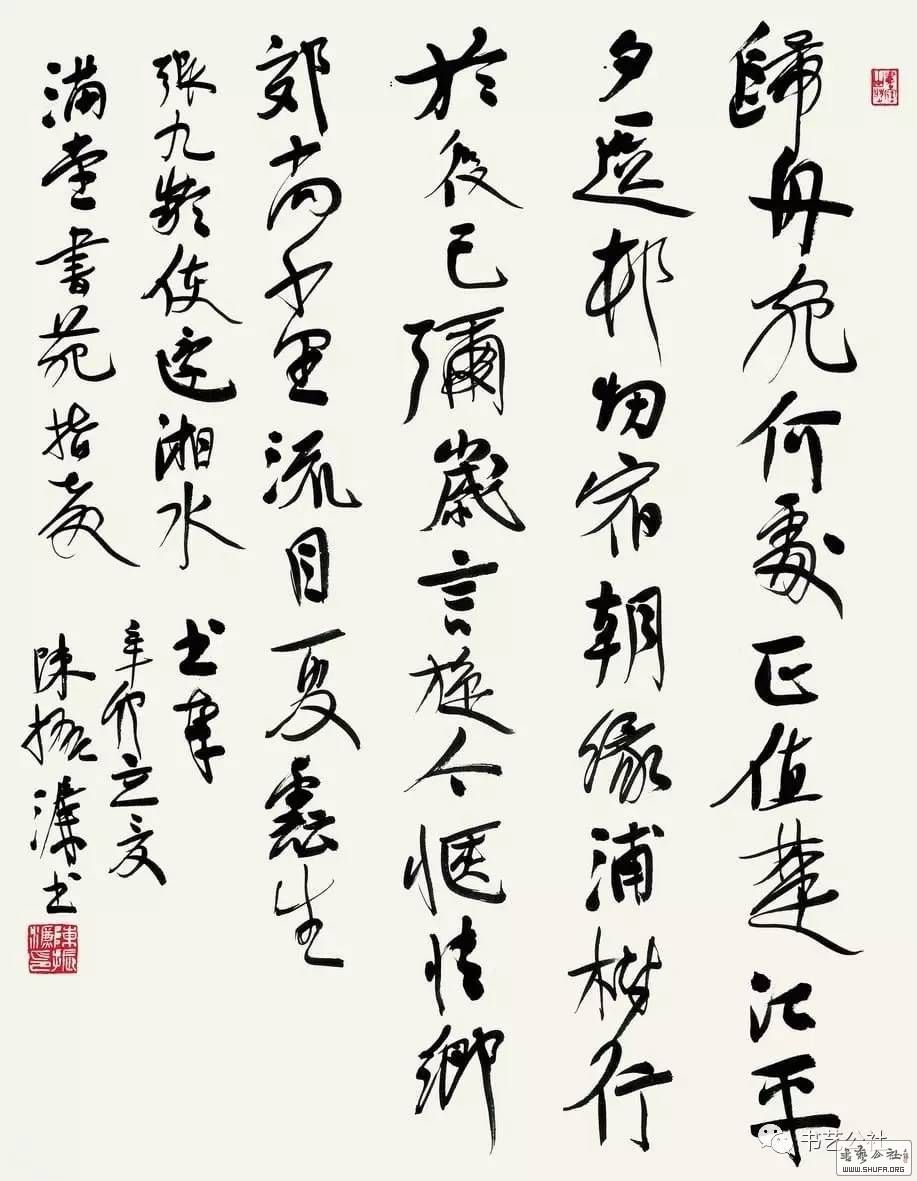 歸舟宛何處正值楚江平
夕逗邨烟宿朝緣浦樹行
於役已彌歲言旋今愜情鄉
郊尚千里流目夏雲生
張九齡使還湘水書奉
滿堂書苑指教
辛卯立夏
陳振濂書
陳振濂印
书艺公社
書藝公社
WWW.SHUFA.ORG